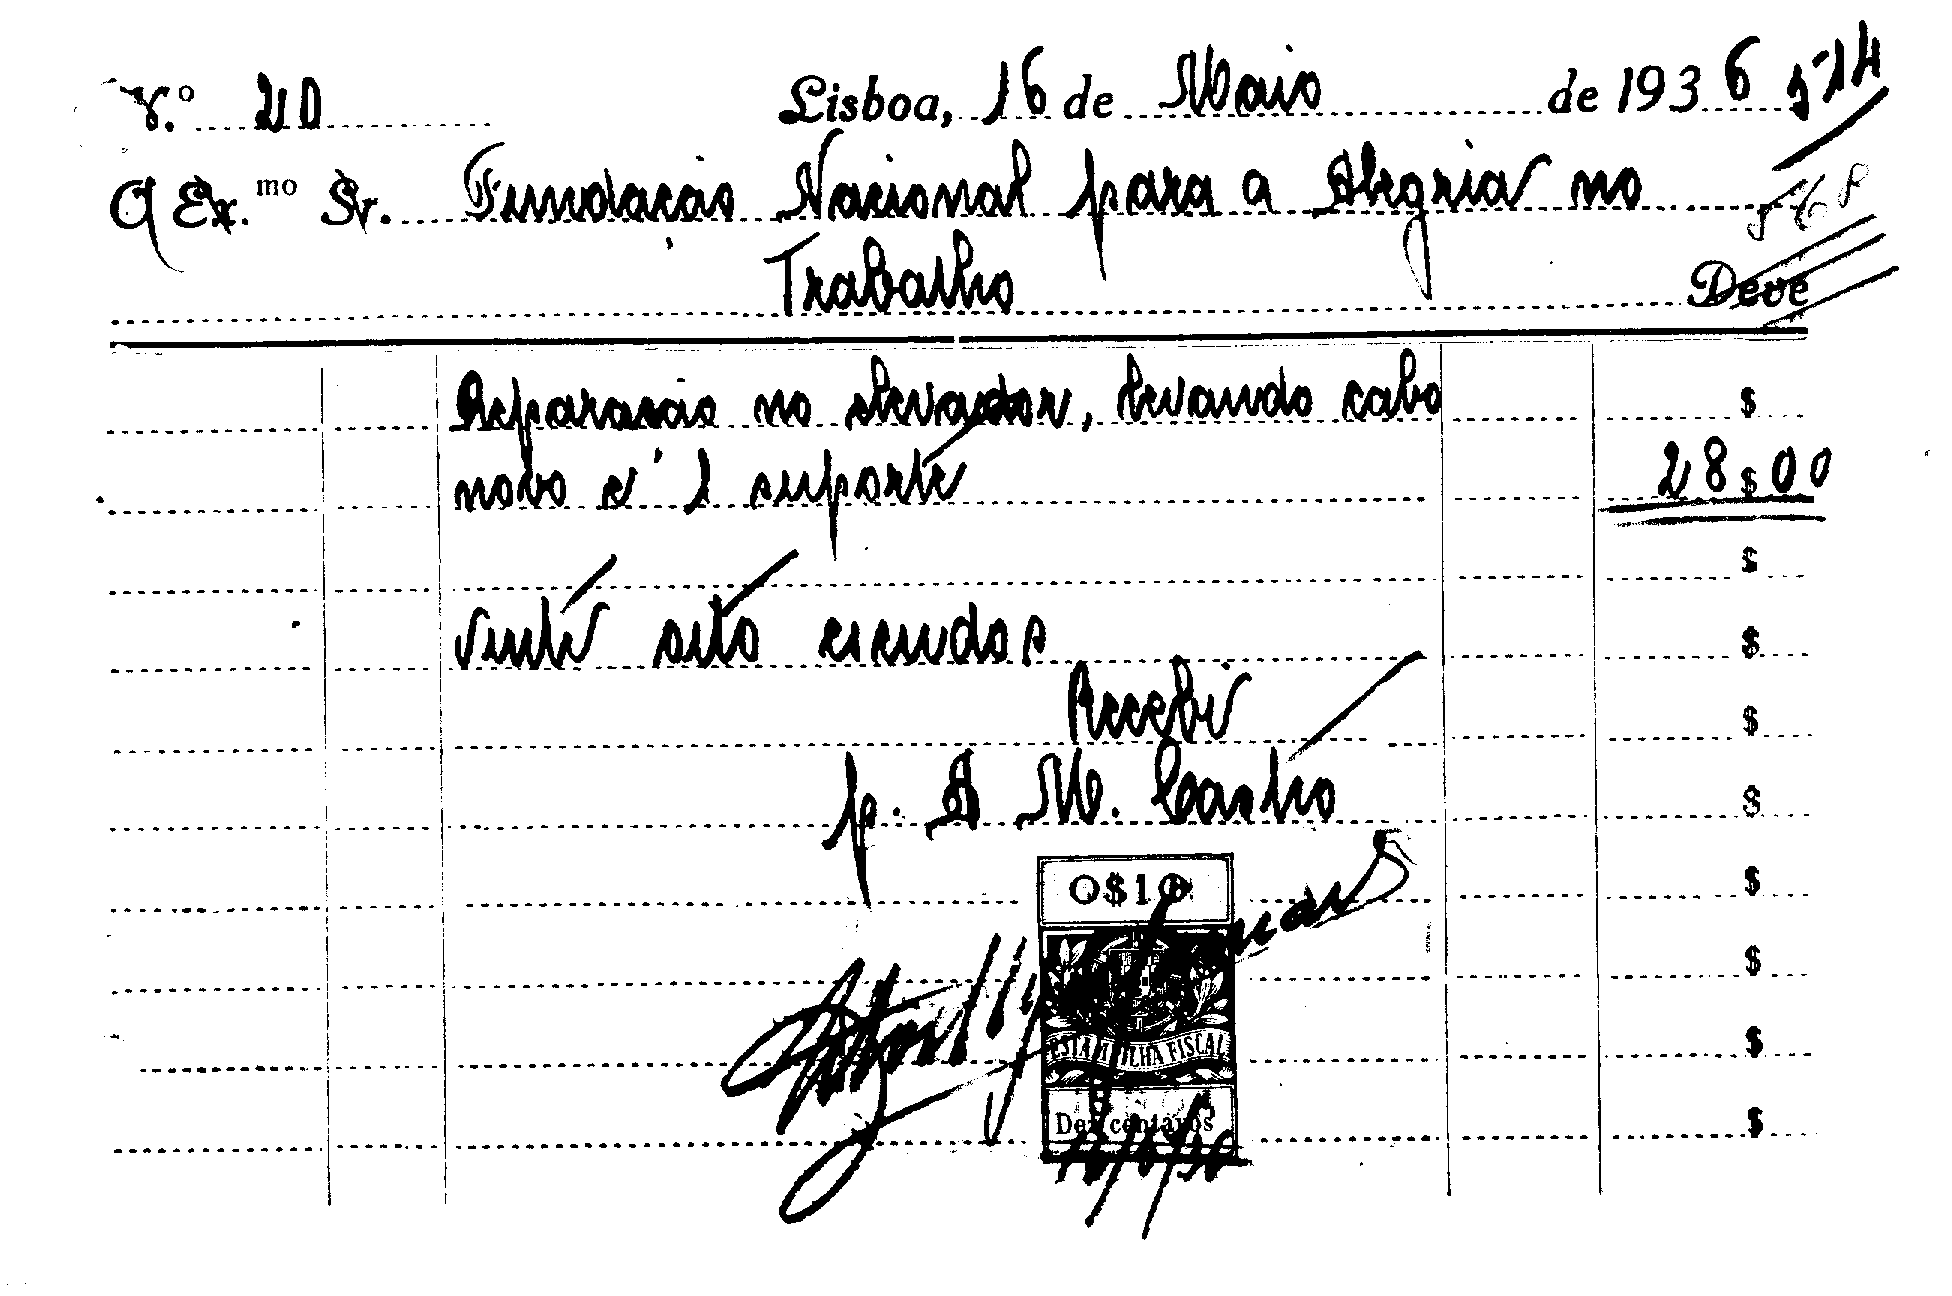 N.º 20 Lisboa, 16 de Maio de 1936
A Ex.mo Sr. Fundação Nacional para a Alegria no
Trabalho
Deve
Reparação no elevador, levando cabo
novo e 1 suporte 28$00
Vinte oito escudos
Recebi
p. A M. Castro
O$10
ESTAMPILHA FISCAL
Dez centavos